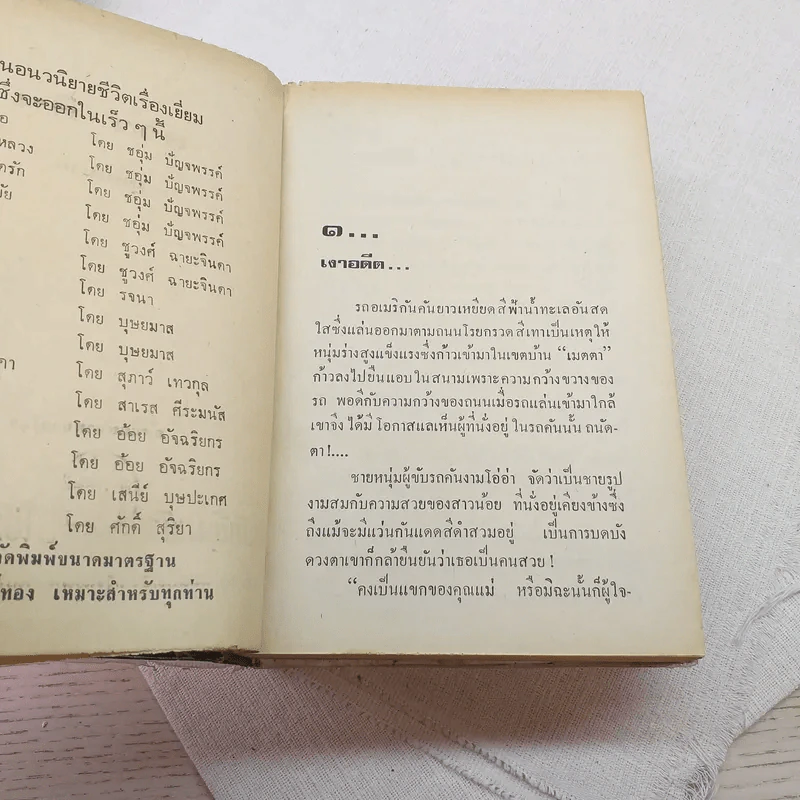 นอนวนิยายชีวิตเรื่องเยี่ยม
ซึ่งจะออกในเร็ว ๆ นี้
โดย ชอุ่ม ปัญจพรรค์
หลวง โดย ชอุ่ม ปัญจพรรค์
โดย ชอุ่ม ปัญจพรรค์
โดย ชอุ่ม ปัญจพรรค์
โดย ชูวงศ์ ฉายะจินดา
โดย ชูวงศ์ ฉายะจินดา
โดย รจนา
โดย บุษยมาส
โดย บุษยมาส
โดย สุภาว์ เทวกุล
โดย สาเรส ศีระมนัส
โดย อ้อย อัจฉริยกร
โดย อ้อย อัจฉริยกร
โดย เสนีย์ บุษปะเกศ
โดย ศักดิ์ สุริยา
จัดพิมพ์ขนาดมาตรฐาน
ทอง เหมาะสำหรับทุกท่าน
๑...
เงาอดีต...
รถอเมริกันคันยาวเหยียดสีฟ้าน้ำทะเลอันสด
ใสซึ่งแล่นออกมาตามถนนโรยกรวดสีเทาเป็นเหตุให้
หนุ่มร่างสูงแข็งแรงซึ่งก้าวเข้ามาในเขตบ้าน “เมตตา”
ก้าวลงไปยืนแอบในสนามเพราะความกว้างขวางของ
รถ พอดีกับความกว้างของถนนเมื่อรถแล่นเข้ามาใกล้
เขาจึง ได้มี โอกาสแลเห็นผู้ที่นั่งอยู่ ในรถคันนั้น ถนัด-
ตา !....
ชายหนุ่มผู้ขับรถคันงามโอ่อ่า จัดว่าเป็นชายรูป
งามสมกับความสวยของสาวน้อย ที่นั่งอยู่เคียงข้างซึ่ง
ถึงแม้จะมีแว่นกันแดดสีดำสวมอยู่ เป็นการบดบัง
ดวงตาเขาก็กล้ายืนยันว่าเธอเป็นคนสวย !
“คงเป็นแขกของคุณแม่ หรือมิฉะนั้นก็ผู้ใจ-